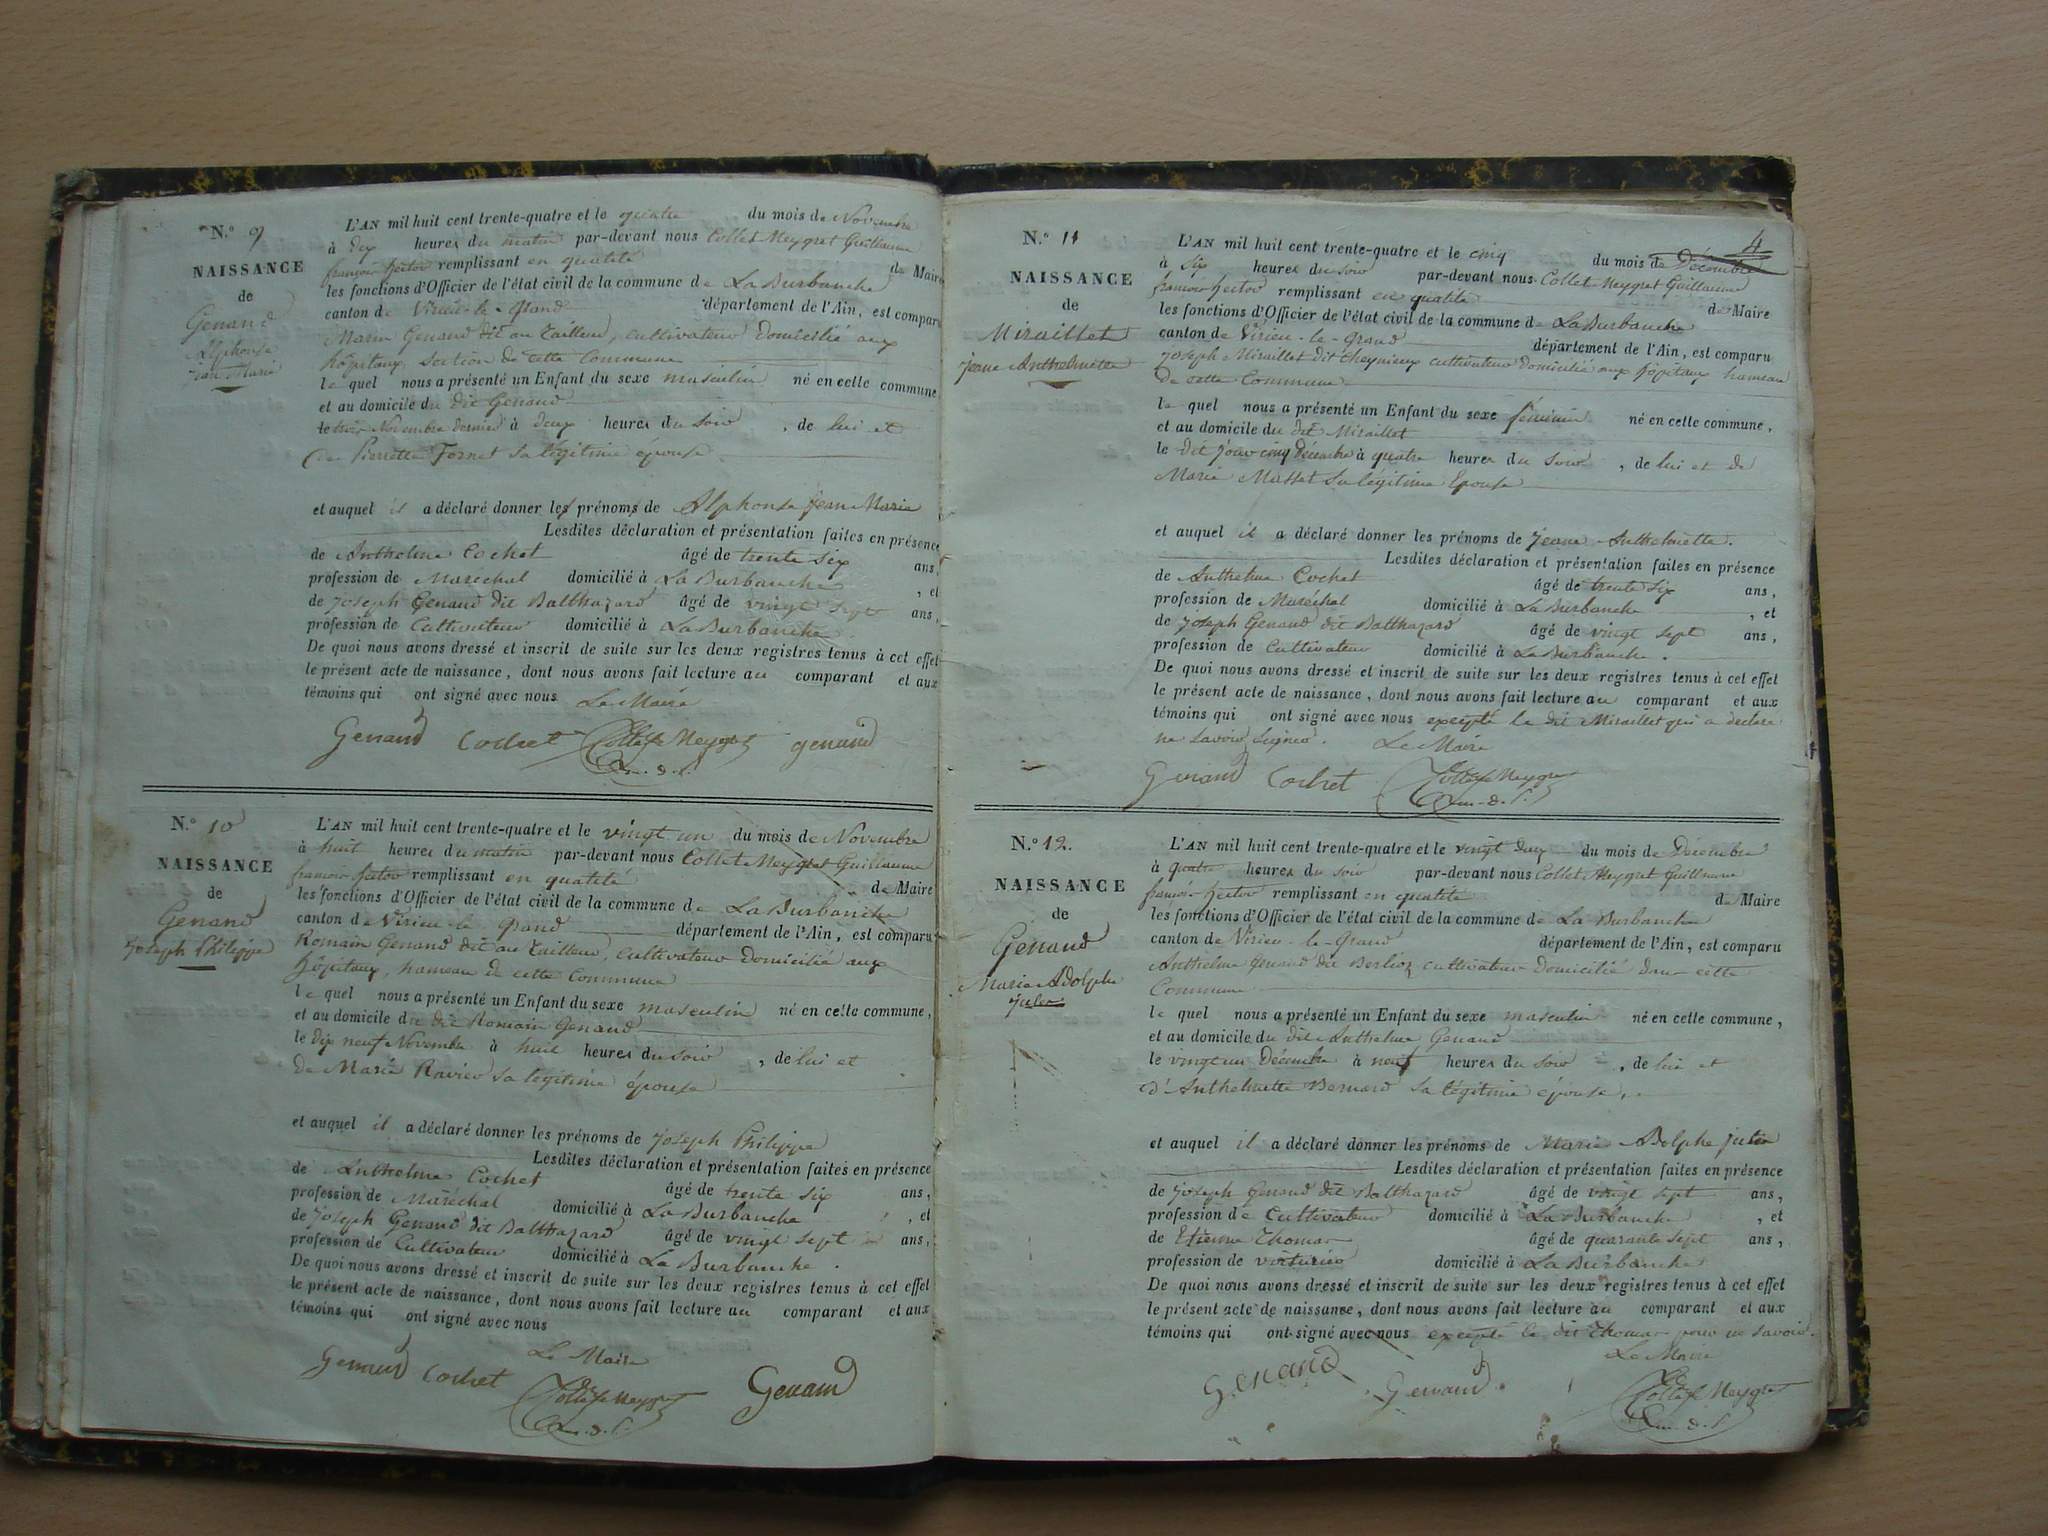 N.° 9
NAISSANCE
de
Genand
Alphonse
Jean Marie
L'AN mil huit cent trente-quatre et le quatre du mois de Novembre
à dix heures du matin par-devant nous Collet Meygret Guillaume
françois hector remplissant en qualité de Maire
les fonctions d'Officier de l'état civil de la commune de La Burbanche
canton de Virieu-le-Grand département de l'Ain, est comparu
Marin Genand dit au Tailleur, cultivateur Domicilié aux
hôpitaux, section de cette Commune
le quel nous a présenté un Enfant du sexe masculin né en cette commune
et au domicile du dit Genand
le trois Novembre dernier à deux heures du soir, de lui et
de Pierrette Fornet sa légitime épouse
et auquel il a déclaré donner les prénoms de Alphonse Jean Marie
Lesdites déclaration et présentation faites en présence
de Anthelme Cochet âgé de trente six ans,
profession de Maréchal domicilié à La Burbanche, et
de Joseph Genand dit Balthazard âgé de vingt sept ans,
profession de Cultivateur domicilié à La Burbanche.
De quoi nous avons dressé et inscrit de suite sur les deux registres tenus à cet effet
le présent acte de naissance, dont nous avons fait lecture au comparant et aux
témoins qui ont signé avec nous Le Maire
Genand Cochet Collet Meygret genand
N.° 10
NAISSANCE
de
Genand
Joseph Philippe
L'AN mil huit cent trente-quatre et le vingt un du mois de Novembre
à huit heures du matin par-devant nous Collet Meygret Guillaume
françois hector remplissant en qualité de Maire
les fonctions d'Officier de l'état civil de la commune de La Burbanche
canton de Virieu-le Grand département de l'Ain, est comparu
Romain Genand dit au Tailleur, cultivateur Domicilié aux
hôpitaux, hameau de cette Commune
le quel nous a présenté un Enfant du sexe masculin né en cette commune,
et au domicile du dit Romain Genand
le dix neuf Novembre à huit heures du soir, de lui et
de Marie Ravier sa légitime épouse
et auquel il a déclaré donner les prénoms de Joseph Philippe
Lesdites déclaration et présentation faites en présence
de Anthelme Cochet âgé de trente six ans,
profession de Maréchal domicilié à La Burbanche, et
de Joseph Genand dit Balthazard âgé de vingt sept ans,
profession de Cultivateur domicilié à La Burbanche.
De quoi nous avons dressé et inscrit de suite sur les deux registres tenus à cet effet
le présent acte de naissance, dont nous avons fait lecture au comparant et aux
témoins qui ont signé avec nous
Le Maire
Genand Cochet Collet Meygret Genand
4
N.° 11
NAISSANCE
de
Miraillet
Jeane Anthelmette
L'AN mil huit cent trente-quatre et le cinq du mois de Décembre
à six heures du soir par-devant nous Collet Meygret Guillaume
françois hector remplissant en qualité de Maire
les fonctions d'Officier de l'état civil de la commune de La Burbanche
canton de Virieu-le-Grand département de l'Ain, est comparu
Joseph Miraillet dit Cheynieux cultivateur Domicilié aux hôpitaux hameau
de cette Commune
le quel nous a présenté un Enfant du sexe féminin né en cette commune,
et au domicile du dit Miraillet
le dit jour cinq Décembre à quatre heures du soir, de lui et de
Marie Masset sa légitime Epouse
et auquel il a déclaré donner les prénoms de Jeane Anthelmette.
Lesdites déclaration et présentation faites en présence
de Anthelme Cochet âgé de trente six ans,
profession de Maréchal domicilié à La Burbanche, et
de Joseph Genand dit Balthazard âgé de vingt sept ans,
profession de Cultivateur domicilié à La Burbanche.
De quoi nous avons dressé et inscrit de suite sur les deux registres tenus à cet effet
le présent acte de naissance, dont nous avons fait lecture au comparant et aux
témoins qui ont signé avec nous excepté le dit Miraillet qui a déclaré
ne savoir signer. Le Maire
Genand Cochet Collet Meygret
N.° 12.
NAISSANCE
de
Genand
Marie Adolphe
Julien
L'AN mil huit cent trente-quatre et le vingt deux du mois de Décembre
à quatre heures du soir par-devant nous Collet Meygret Guillaume
françois hector remplissant en qualité de Maire
les fonctions d'Officier de l'état civil de la commune de La Burbanche
canton de Virieu-le-Grand département de l'Ain, est comparu
Anthelme Genand dit Berlioz cultivateur Domicilié dans cette
Commune
le quel nous a présenté un Enfant du sexe masculin né en cette commune,
et au domicile du dit Anthelme Genand
le vingt un Décembre à neuf heures du soir, de lui et
d'Anthelmette Bernard sa légitime épouse,
et auquel il a déclaré donner les prénoms de Marie Adolphe Julien
Lesdites déclaration et présentation faites en présence
de Joseph Genand dit Balthazard âgé de vingt sept ans,
profession de Cultivateur domicilié à La Burbanche, et
de Etienne Thomas âgé de quarante sept ans,
profession de voiturier domicilié à La Burbanche
De quoi nous avons dressé et inscrit de suite sur les deux registres tenus à cet effet
le présent acte de naissance, dont nous avons fait lecture au comparant et aux
témoins qui ont signé avec nous excepté le dit Thomas pour ne savoir.
Le Maire
Genand Genand Collet Meygret